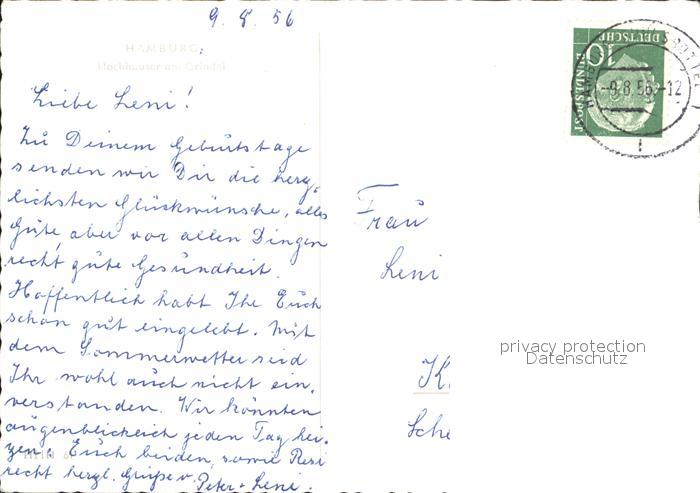 9. 8. 56
HAMBURG
Hochhäuser am Grindel
Liebe Leni!
Zu Deinem Geburtstage
senden wir Dir die herz-
lichsten Glückwünsche, alles
Gute, aber vor allen Dingen
recht gute Gesundheit.
Hoffentlich habt Ihr Euch
schon gut eingelebt. Mit
dem Sommerwetter seid
Ihr wohl auch nicht ein-
verstanden. Wir könnten
augenblicklich jeden Tag hei-
zen. Euch beiden, sowie Resi
recht herzl. Grüße v. Peter + Leni.
Frau
Leni
K.
Sche
DEUTSCHE
BUNDESPOST
10
-9.8.56-12
privacy protection
Datenschutz